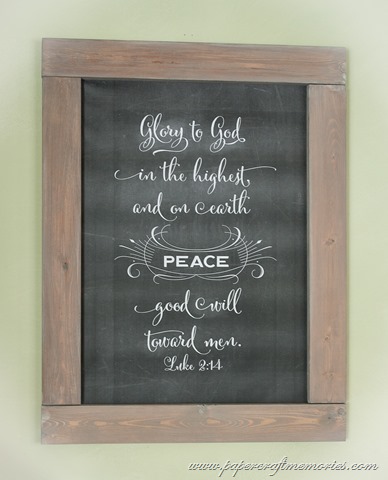 Glory to God
in the highest
and on earth
PEACE
good will
toward men.
Luke 2:14
www.papercraftmemories.com